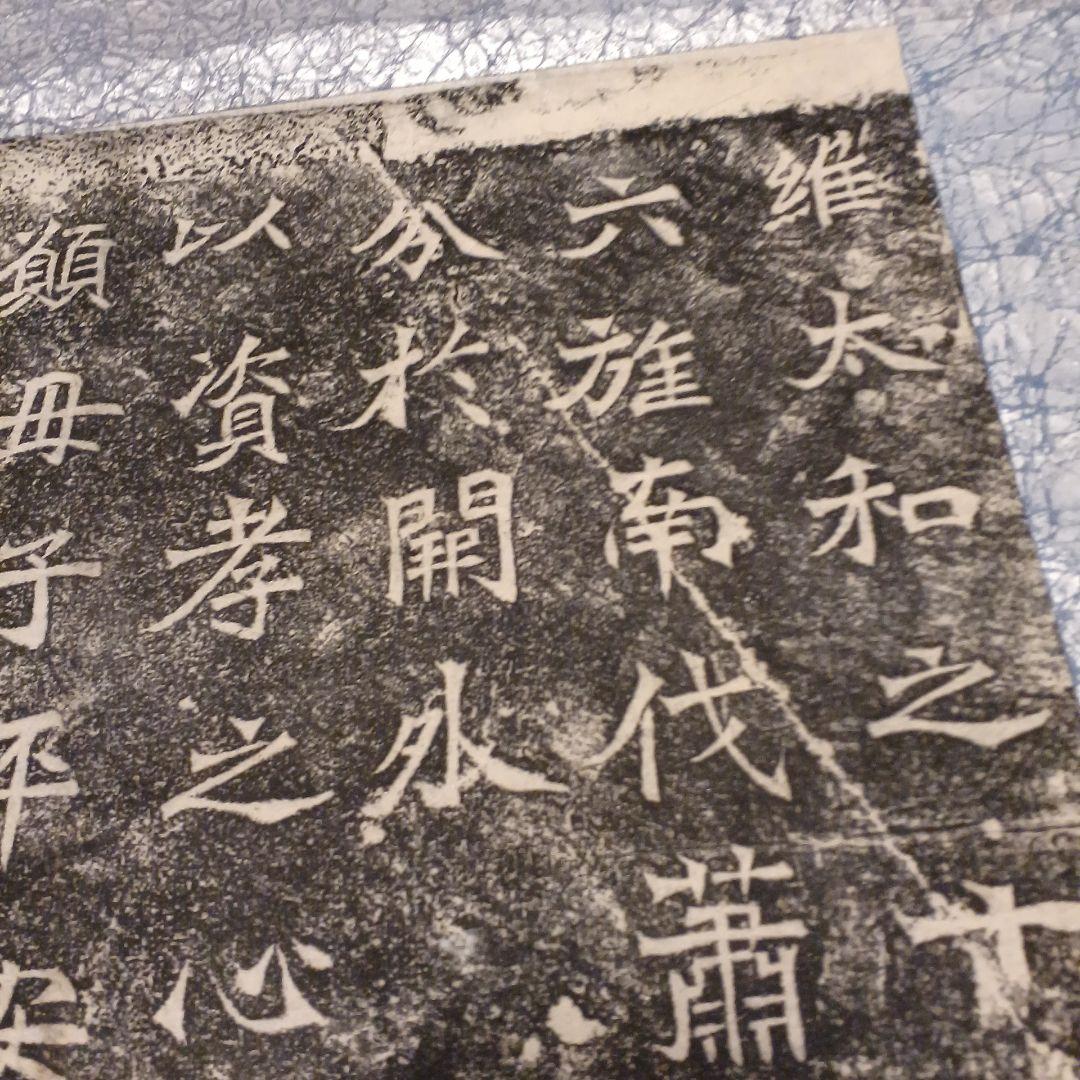 維太和之十
六旌南代蕭
分於開外
以資孝之心
願毋子平安